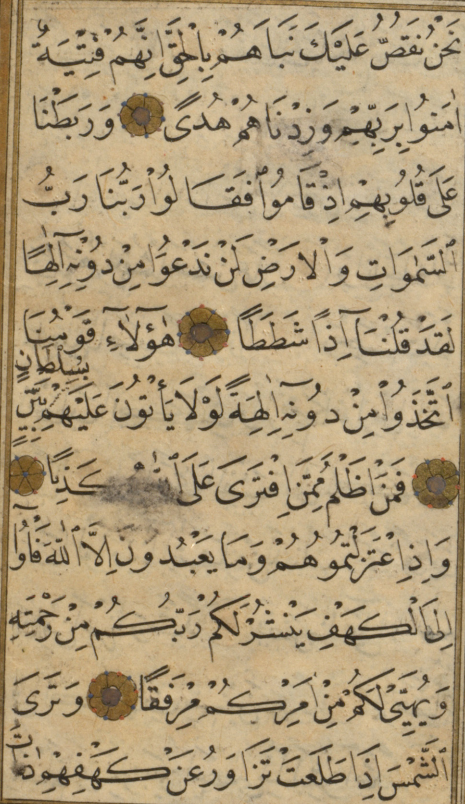 نَحْنُ نَقُصُّ عَلَيْكَ نَبَاَهُمْ بِالْحَقِّ اِنَّهُمْ فِتْيَةٌ
اٰمَنُوا بِرَبِّهِمْ وَزِدْنَاهُمْ هُدًى وَرَبَطْنَا
عَلَى قُلُوبِهِمْ اِذْ قَامُوا فَقَالُوا رَبُّنَا رَبُّ
السَّمٰوَاتِ وَالْاَرْضِ لَنْ نَدْعُوَا مِنْ دُونِهِ اِلٰهًا
لَقَدْ قُلْنَا اِذًا شَطَطًا هٰؤُلَاءِ قَوْمُنَا
اتَّخَذُوا مِنْ دُونِهِ اٰلِهَةً لَوْلَا يَأْتُونَ عَلَيْهِمْ بِسُلْطَانٍ بَيِّنٍ
فَمَنْ اَظْلَمُ مِمَّنِ افْتَرَى عَلَى اللّٰهِ كَذِبًا
وَاِذِ اعْتَزَلْتُمُوهُمْ وَمَا يَعْبُدُونَ اِلَّا اللّٰهَ فَأْوُا
اِلَى الْكَهْفِ يَنْشُرْ لَكُمْ رَبُّكُمْ مِنْ رَحْمَتِهِ
وَيُهَيِّئْ لَكُمْ مِنْ اَمْرِكُمْ مِرْفَقًا وَتَرَى
الشَّمْسَ اِذَا طَلَعَتْ تَزَاوَرُ عَنْ كَهْفِهِمْ ذَاتَ